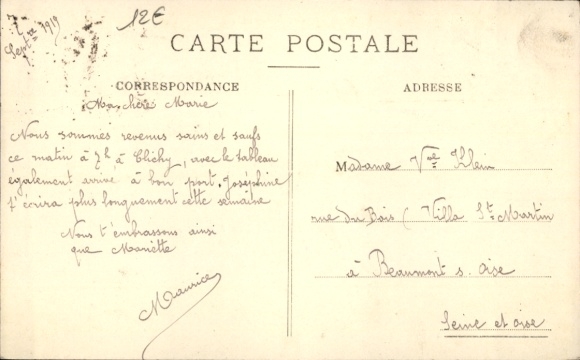 7 Septbre 1919
12€
CARTE POSTALE
CORRESPONDANCE
ADRESSE
Ma chère Marie
Nous sommes revenus sains et saufs
ce matin à 7h à Clichy, avec le tableau
également arrivé à bon port. Joséphine
t'écrira plus longuement cette semaine
Nous t'embrassons ainsi
que Mariette
Maurice
Madame Vve Klein
rue du Bois (Villa St Martin
à Beaumont s. Oise
Seine et oise